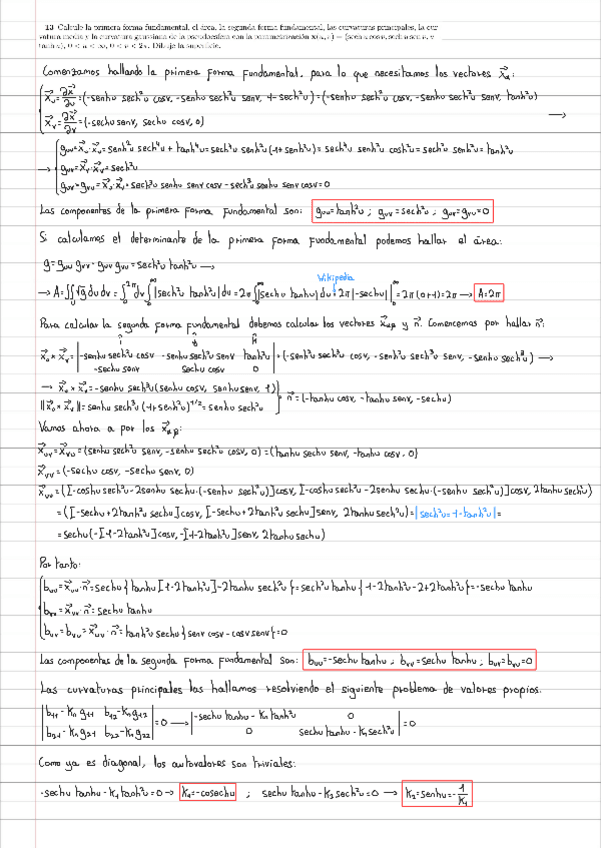 13 Calcule la primera forma fundamental, el área, la segunda forma fundamental, las curvaturas principales, la cur-
vatura media y la curvatura gaussiana de la pseudoesfera con la parametrización x(u, v) = (sech u cos v, sech u sen v, u −
tanh u), 0 < u < ∞, 0 < v < 2π. Dibuje la superficie.
Comenzamos hallando la primera forma fundamental, para lo que necesitamos los vectores x⃗α:
x⃗u = ∂x⃗/∂u = (-senhu sech²u cosv, -senhu sech²u senv, 1-sech²u) = (-senhu sech²u cosv, -senhu sech²u senv, tanh²u)
x⃗v = ∂x⃗/∂v = (-sechu senv, sechu cosv, 0) →
guu = x⃗u·x⃗u = senh²u sech⁴u + tanh⁴u = sech⁴u senh²u (1+senh²u) = sech⁴u senh²u cosh²u = sech²u senh²u = tanh²u
→ gvv = x⃗v·x⃗v = sech²u
guv = gvu = x⃗u·x⃗v = sech³u senhu senv cosv - sech³u senhu senv cosv = 0
Las componentes de la primera forma fundamental son: guu = tanh²u ; gvv = sech²u ; guv = gvu = 0
Si calculamos el determinante de la primera forma fundamental podemos hallar el área:
g = guu gvv - guv gvu = sech²u tanh²u →
Wikipedia
→ A = ∬√g du dv = ∫₀^2π dv ∫₀^∞ |sech²u tanh²u| du = 2π ∫₀^∞ |sechu tanhu| du = 2π |-sechu| |₀^∞ = 2π (0+1) = 2π → A = 2π
Para calcular la segunda forma fundamental debemos calcular los vectores x⃗αβ y n⃗. Comencemos por hallar n⃗:
x⃗u × x⃗v = | -senhu sech²u cosv -senhu sech²u senv tanh²u | = (-senh²u sech³u cosv, -senh²u sech³u senv, -senhu sech³u) →
-sechu senv sechu cosv 0
→ x⃗u × x⃗v = -senhu sech³u (senhu cosv, senhu senv, 1)
||x⃗u × x⃗v || = senhu sech³u (1+senh²u)^1/2 = senhu sech²u } n⃗ = (-tanhu cosv, -tanhu senv, -sechu)
Vamos ahora a por los x⃗αβ:
x⃗uv = x⃗vu = (senhu sech²u senv, -senhu sech²u cosv, 0) = (tanhu sechu senv, -tanhu cosv, 0)
x⃗vv = (-sechu cosv, -sechu senv, 0)
x⃗uu = ([-coshu sech²u - 2senhu sechu·(-senhu sech²u)] cosv, [-coshu sech²u - 2senhu sechu·(-senhu sech²u)] cosv, 2tanhu sech²u)
= ([-sechu + 2tanh²u sechu] cosv, [-sechu + 2tanh²u sechu] senv, 2tanhu sech²u) = | sech²u = 1 - tanh²u | =
= sechu (-[1-2tanh²u] cosv, -[1-2tanh²u] senv, 2tanhu sechu)
Por tanto:
buu = x⃗uu·n⃗ = sechu { tanhu [1-2tanh²u] - 2tanhu sech²u } = sech²u tanhu { 1-2tanh²u - 2+2tanh²u } = -sechu tanhu
bvv = x⃗vv·n⃗ = sechu tanhu
buv = bvu = x⃗uv·n⃗ = tanh²u sechu { senv cosv - cosv senv } = 0
Las componentes de la segunda forma fundamental son: buu = -sechu tanhu ; bvv = sechu tanhu ; buv = bvu = 0
Las curvaturas principales las hallamos resolviendo el siguiente problema de valores propios.
| b11 - Kn g11 b12 - Kn g12 | = 0 → | -sechu tanhu - Kn tanh²u 0 | = 0
b21 - Kn g21 b22 - Kn g22 0 sechu tanhu - Kn sech²u
Como ya es diagonal, los autovalores son triviales:
-sechu tanhu - K1 tanh²u = 0 → K1 = -cosechu ; sechu tanhu - K2 sech²u = 0 → K2 = senhu = -1/K1